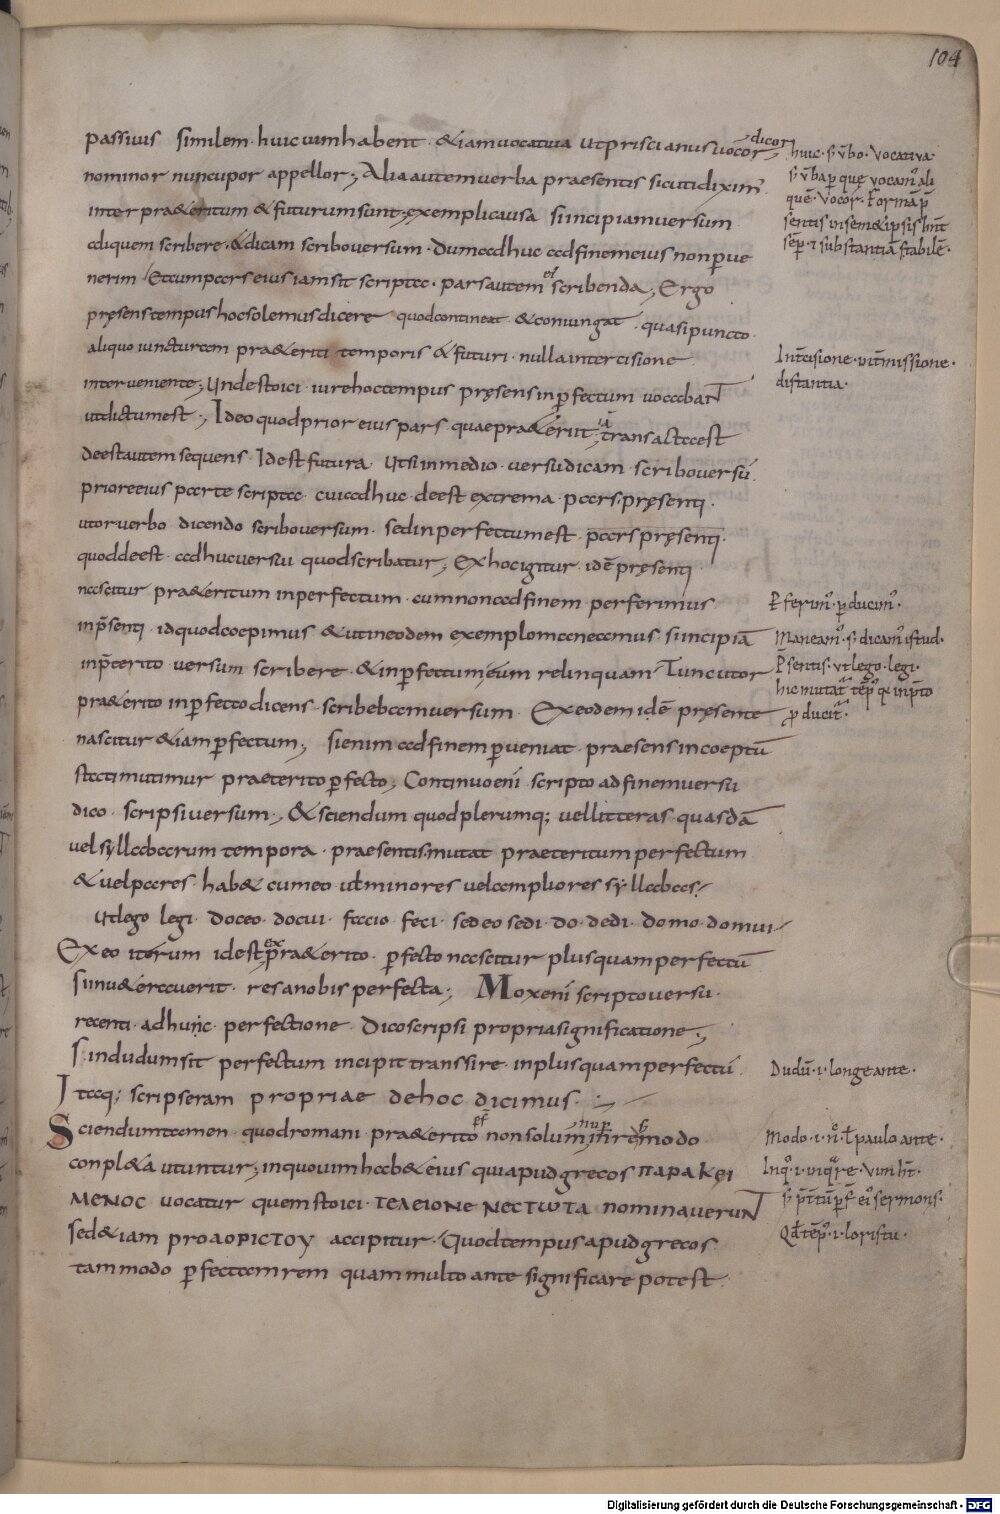 104
passiuus similem huic uim habent &iam uocatiua ut priscianus uocor dicor
nominor nuncupor appellor; Alia autem uerba praesentis sicuti diximꝰ
inter pra&eritum & futurum sunt exempli causa si incipiam uersum
aliquem scribere & dicam scribo uersum dum adhuc ad finem eius non ꝑue
nerim Et cum pars eius iam sit scripta pars autem scribenda; Ergo
pręsens tempus hoc solemus dicere quod contineat & coniungat quasi puncto
aliquo iuncturam pra&eriti temporis & futuri nulla intercisione
interueniente; Unde stoici iure hoc tempus pręsens inꝑfectum uocabant
ut dictum est; Ideo quod prior eius pars quae pra&eriit iā transacta est
deest autem sequens Idest futura Ut si in medio uersu dicam scribo uersū
priore eius parte scripta cui adhuc deest extrema pars pręsenti
utor uerbo dicendo scribo uersum sed inperfectum est pars pręsenti
quod deest adhuc uersui quod scribatur; Ex hoc igitur idē pręsenti
nascitur pra&eritum inperfectum cum non ad finem perferimus
in p̄senti id quod coepimus & ut in eodem exemplo maneamus si incipiā
in p̄terito uersum scribere & inꝑfectum eum relinquam Tunc utor
pra&erito inꝑfecto dicens scribebam uersum Ex eodem idē pręsente
nascitur &iam ꝑfectum; si enim ad finem ꝑueniat praesens in coeptū
statim utimur praeterito ꝑfecto; Continuo enī scripto ad finem uersu
dico scripsi uersum; & sciendum quod plerumq; uel litteras quasdā
uel syllabarum tempora praesentis mutat praeteritum perfectum
& uel pares hab& cum eo uel minores uel ampliores syllabas
Ut lego legi doceo docui facio feci sedeo sedi do dedi domo domui
Ex eo iterum idest ex pra&erito ꝑfecto nascitur plusquamperfectū
si inu&erauerit res a nobis perfecta; Mox enī scripto uersu
recenti adhuc perfectione Dico scripsi propria significatione;
Sin dudum sit perfectum incipit transsire in plusquamperfectū
Itaq; scripseram propriae de hoc dicimus
Sciendum tamen quod romani pra&erito non solum in re modo
conpl&a utuntur; in quo uim hab& eius qui apud grecos παρακει
μενος uocatur quem stoici τελειον ενεστωτα nominauerunt
sed &iam pro αοριστου accipitur Quod tempus apud grecos
tam modo ꝑfectam rem quam multo ante significare potest
huic s̄ ūbo vocatiua
s̄ ūba ꝑ quę vocamꝰ ali
quē vocor
Int̄cisione
distantia
ꝑferimꝰ ꝑducimꝰ
Maneamꝰ s̄ dicamꝰ istud
p̄sentis vt lego legi
ꝓducit
Dudū .i. longe ante
Modo .i. paulo ante
Digitalisierung gefördert durch die Deutsche Forschungsgemeinschaft - DFG